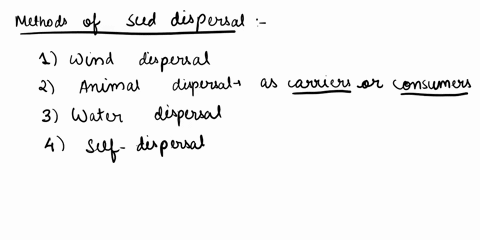 Methods of seed dispersal :-
1) Wind dispersal
2) Animal dispersal → as carriers or consumers
3) Water dispersal
4) Self-dispersal